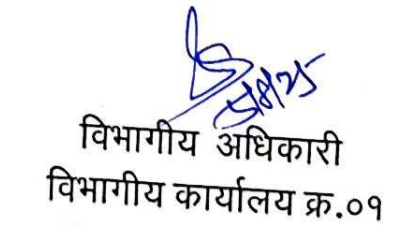 विभागीय अधिकारी
विभागीय कार्यालय क्र.०१